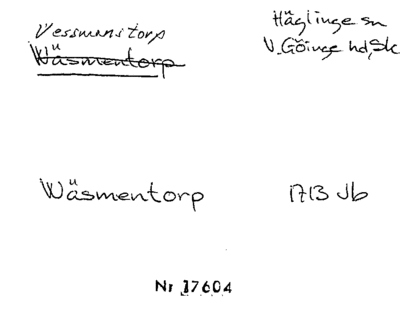 Vessmanstorp
Wäsmentorp
Häglinge sn
V. Göinge hd, Sk
Wäsmentorp
1713 Jb
Nr 17604